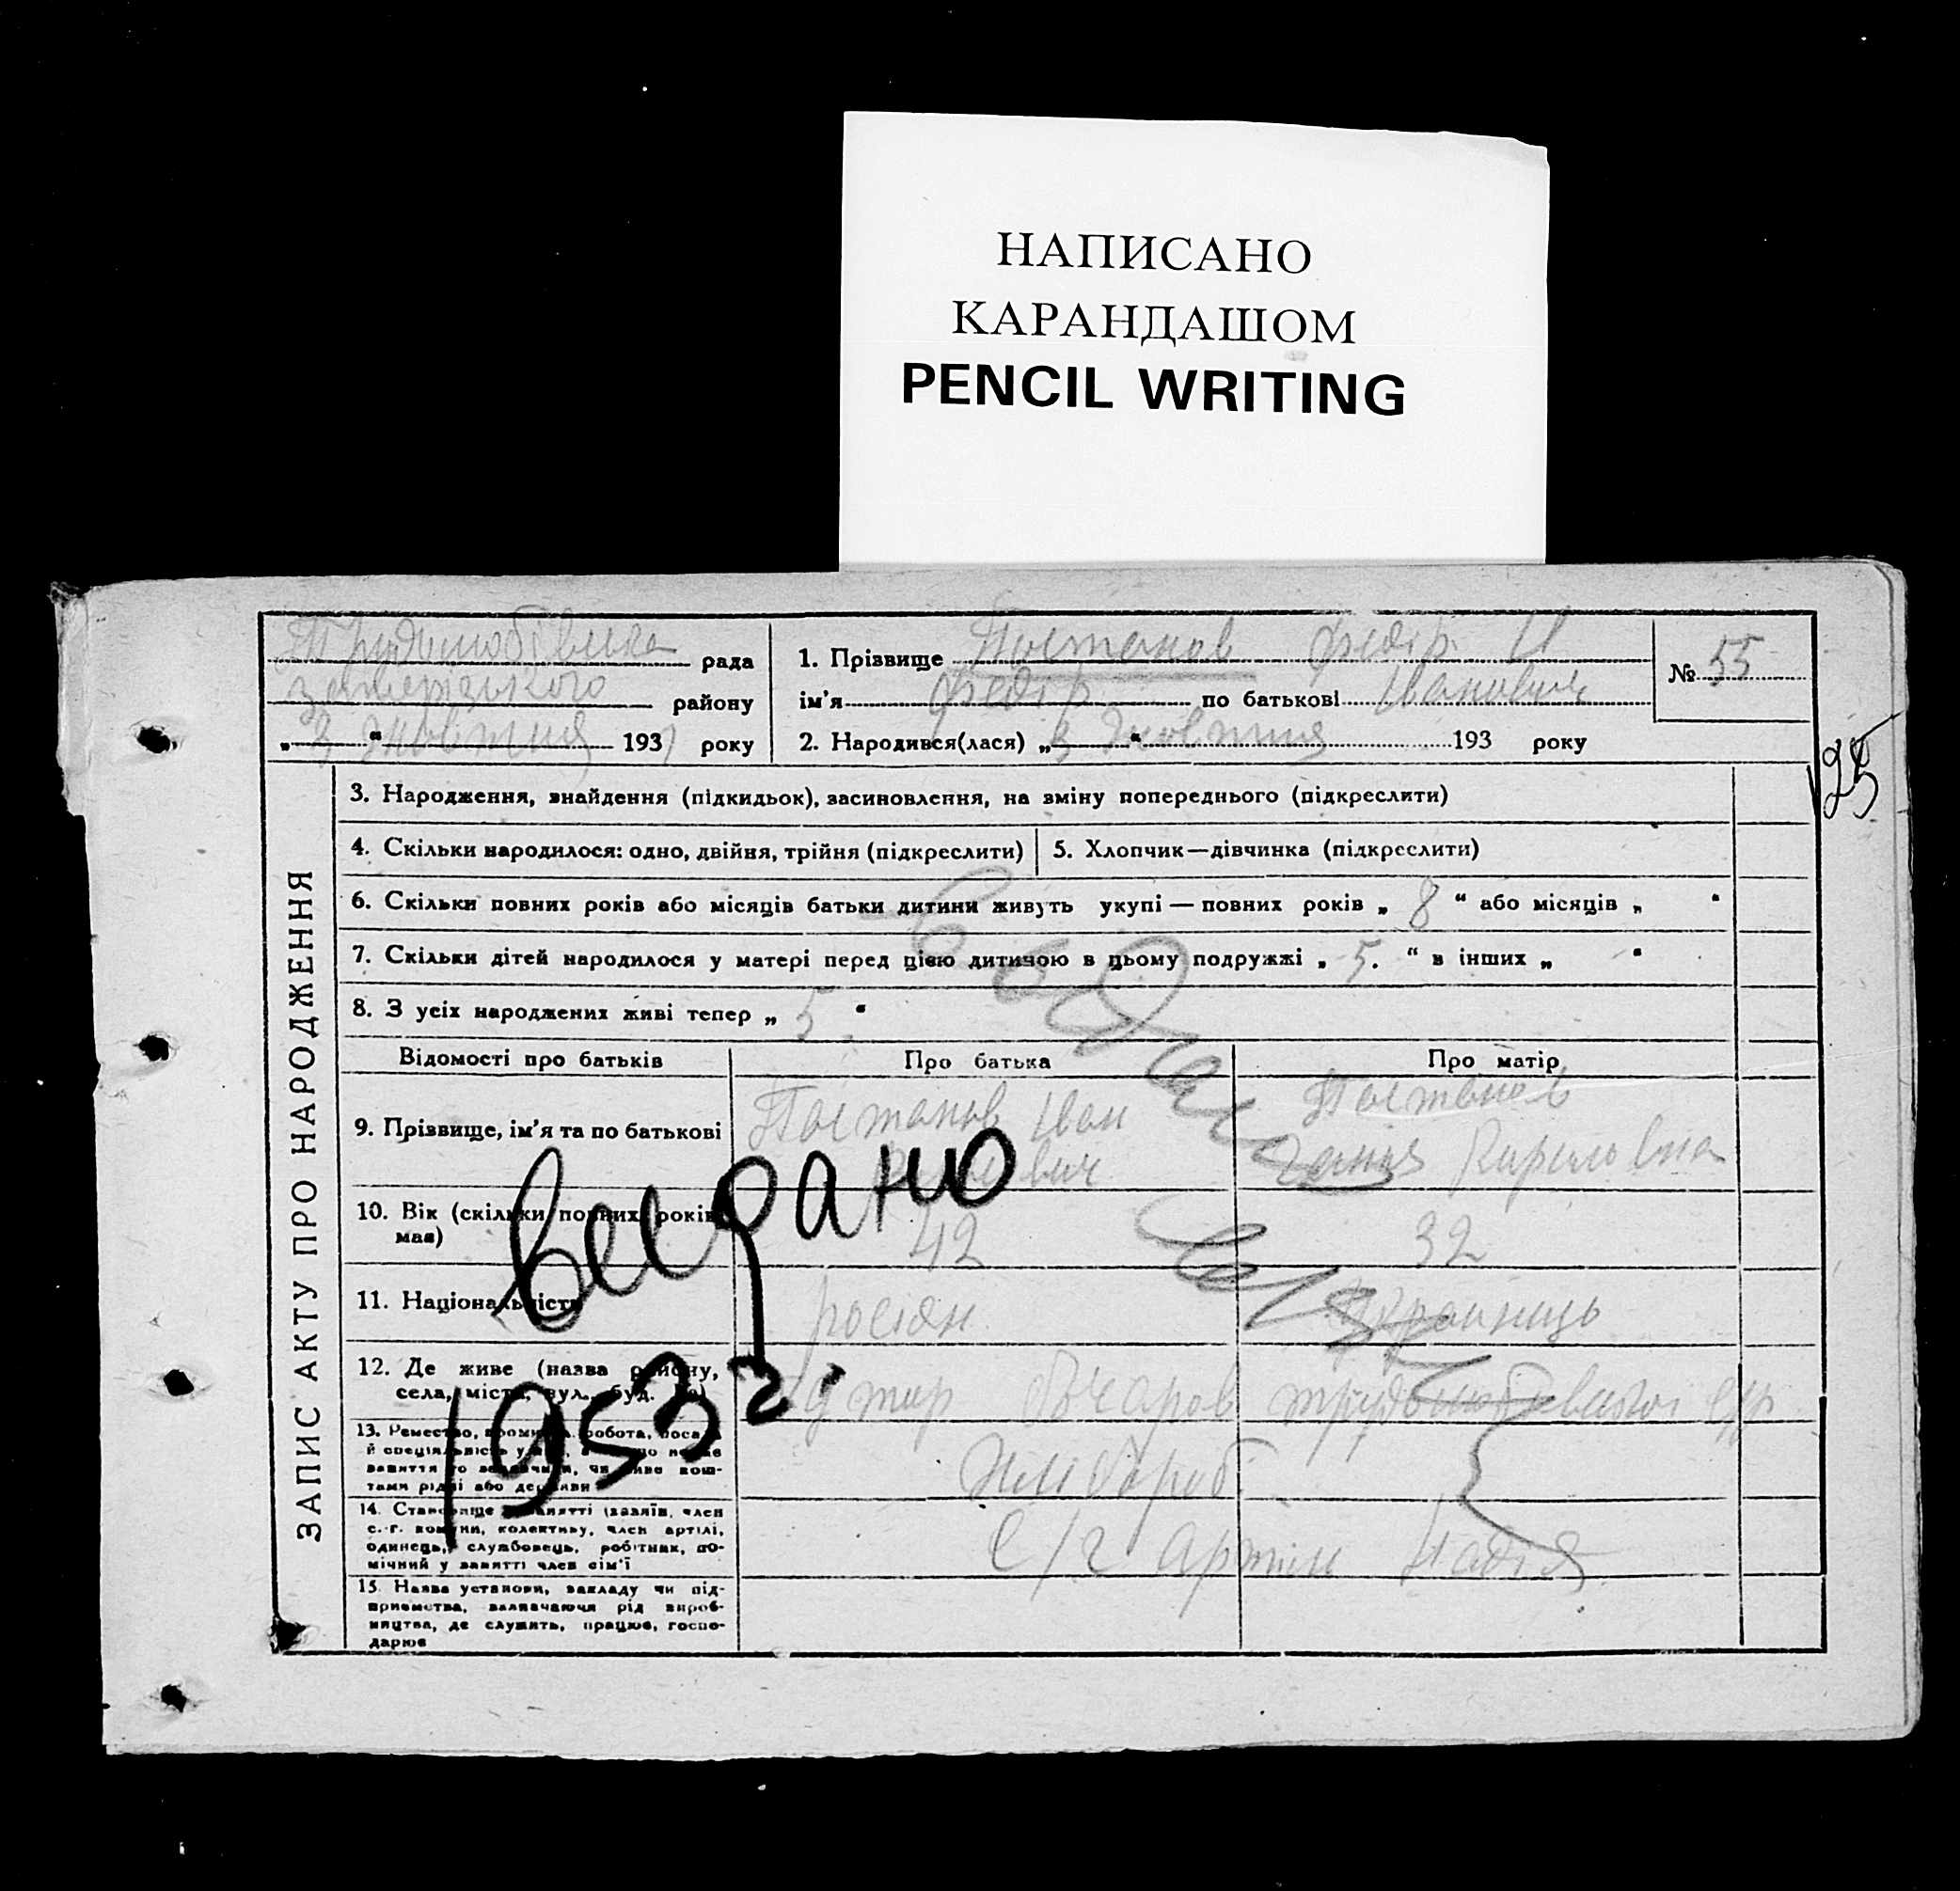 НАПИСАНО
КАРАНДАШОМ
PENCIL WRITING
рада
району
„ 3 “ Жовтня 193 року
1. Прізвище Постанов Федір И
ім’я Федір по батькові Іванович
2. Народився(лася) „ 3 “ Жовтня 193 року
№ 55
25
ЗАПИС АКТУ ПРО НАРОДЖЕННЯ
3. Народження, знайдення (підкидьок), засиновлення, на зміну попереднього (підкреслити)
4. Скільки народилося: одно, двійня, трійня (підкреслити)
5. Хлопчик—дівчинка (підкреслити)
6. Скільки повних років або місяців батьки дитини живуть укупі — повних років „ 8 “ або місяців „ “
7. Скільки дітей народилося у матері перед цією дитиною в цьому подружжі „ 5. “ в інших „ “
8. З усіх народжених живі тепер „ 5 “
Відомості про батьків
Про батька
Про матір
9. Прізвище, ім’я та по батькові
Постанов Іван
Постанов
Ганя Кириловна
10. Вік (скільки повних років
має)
42
32
11. Національність
росіян
Українець
12. Де живе (назва району,
села, міста, вул., буд.
хутир Овчаров
13. Ремество, робота, посада
й спеціальність
заняття то зазначити, чи живе кош-
тами рідні або держави
Хлібороб
14. Становище в занятті (хазяїн, член
с.-г. комуни, колективу, член артілі,
одинець, службовець, робітник, по-
мічний у занятті член сім’ї
с/г артіли Надія
15. Назва установи, закладу чи під-
приємства, зазначаючи рід вироб-
ництва, де служить, працює, госпо-
дарює
выдано
1953 г.